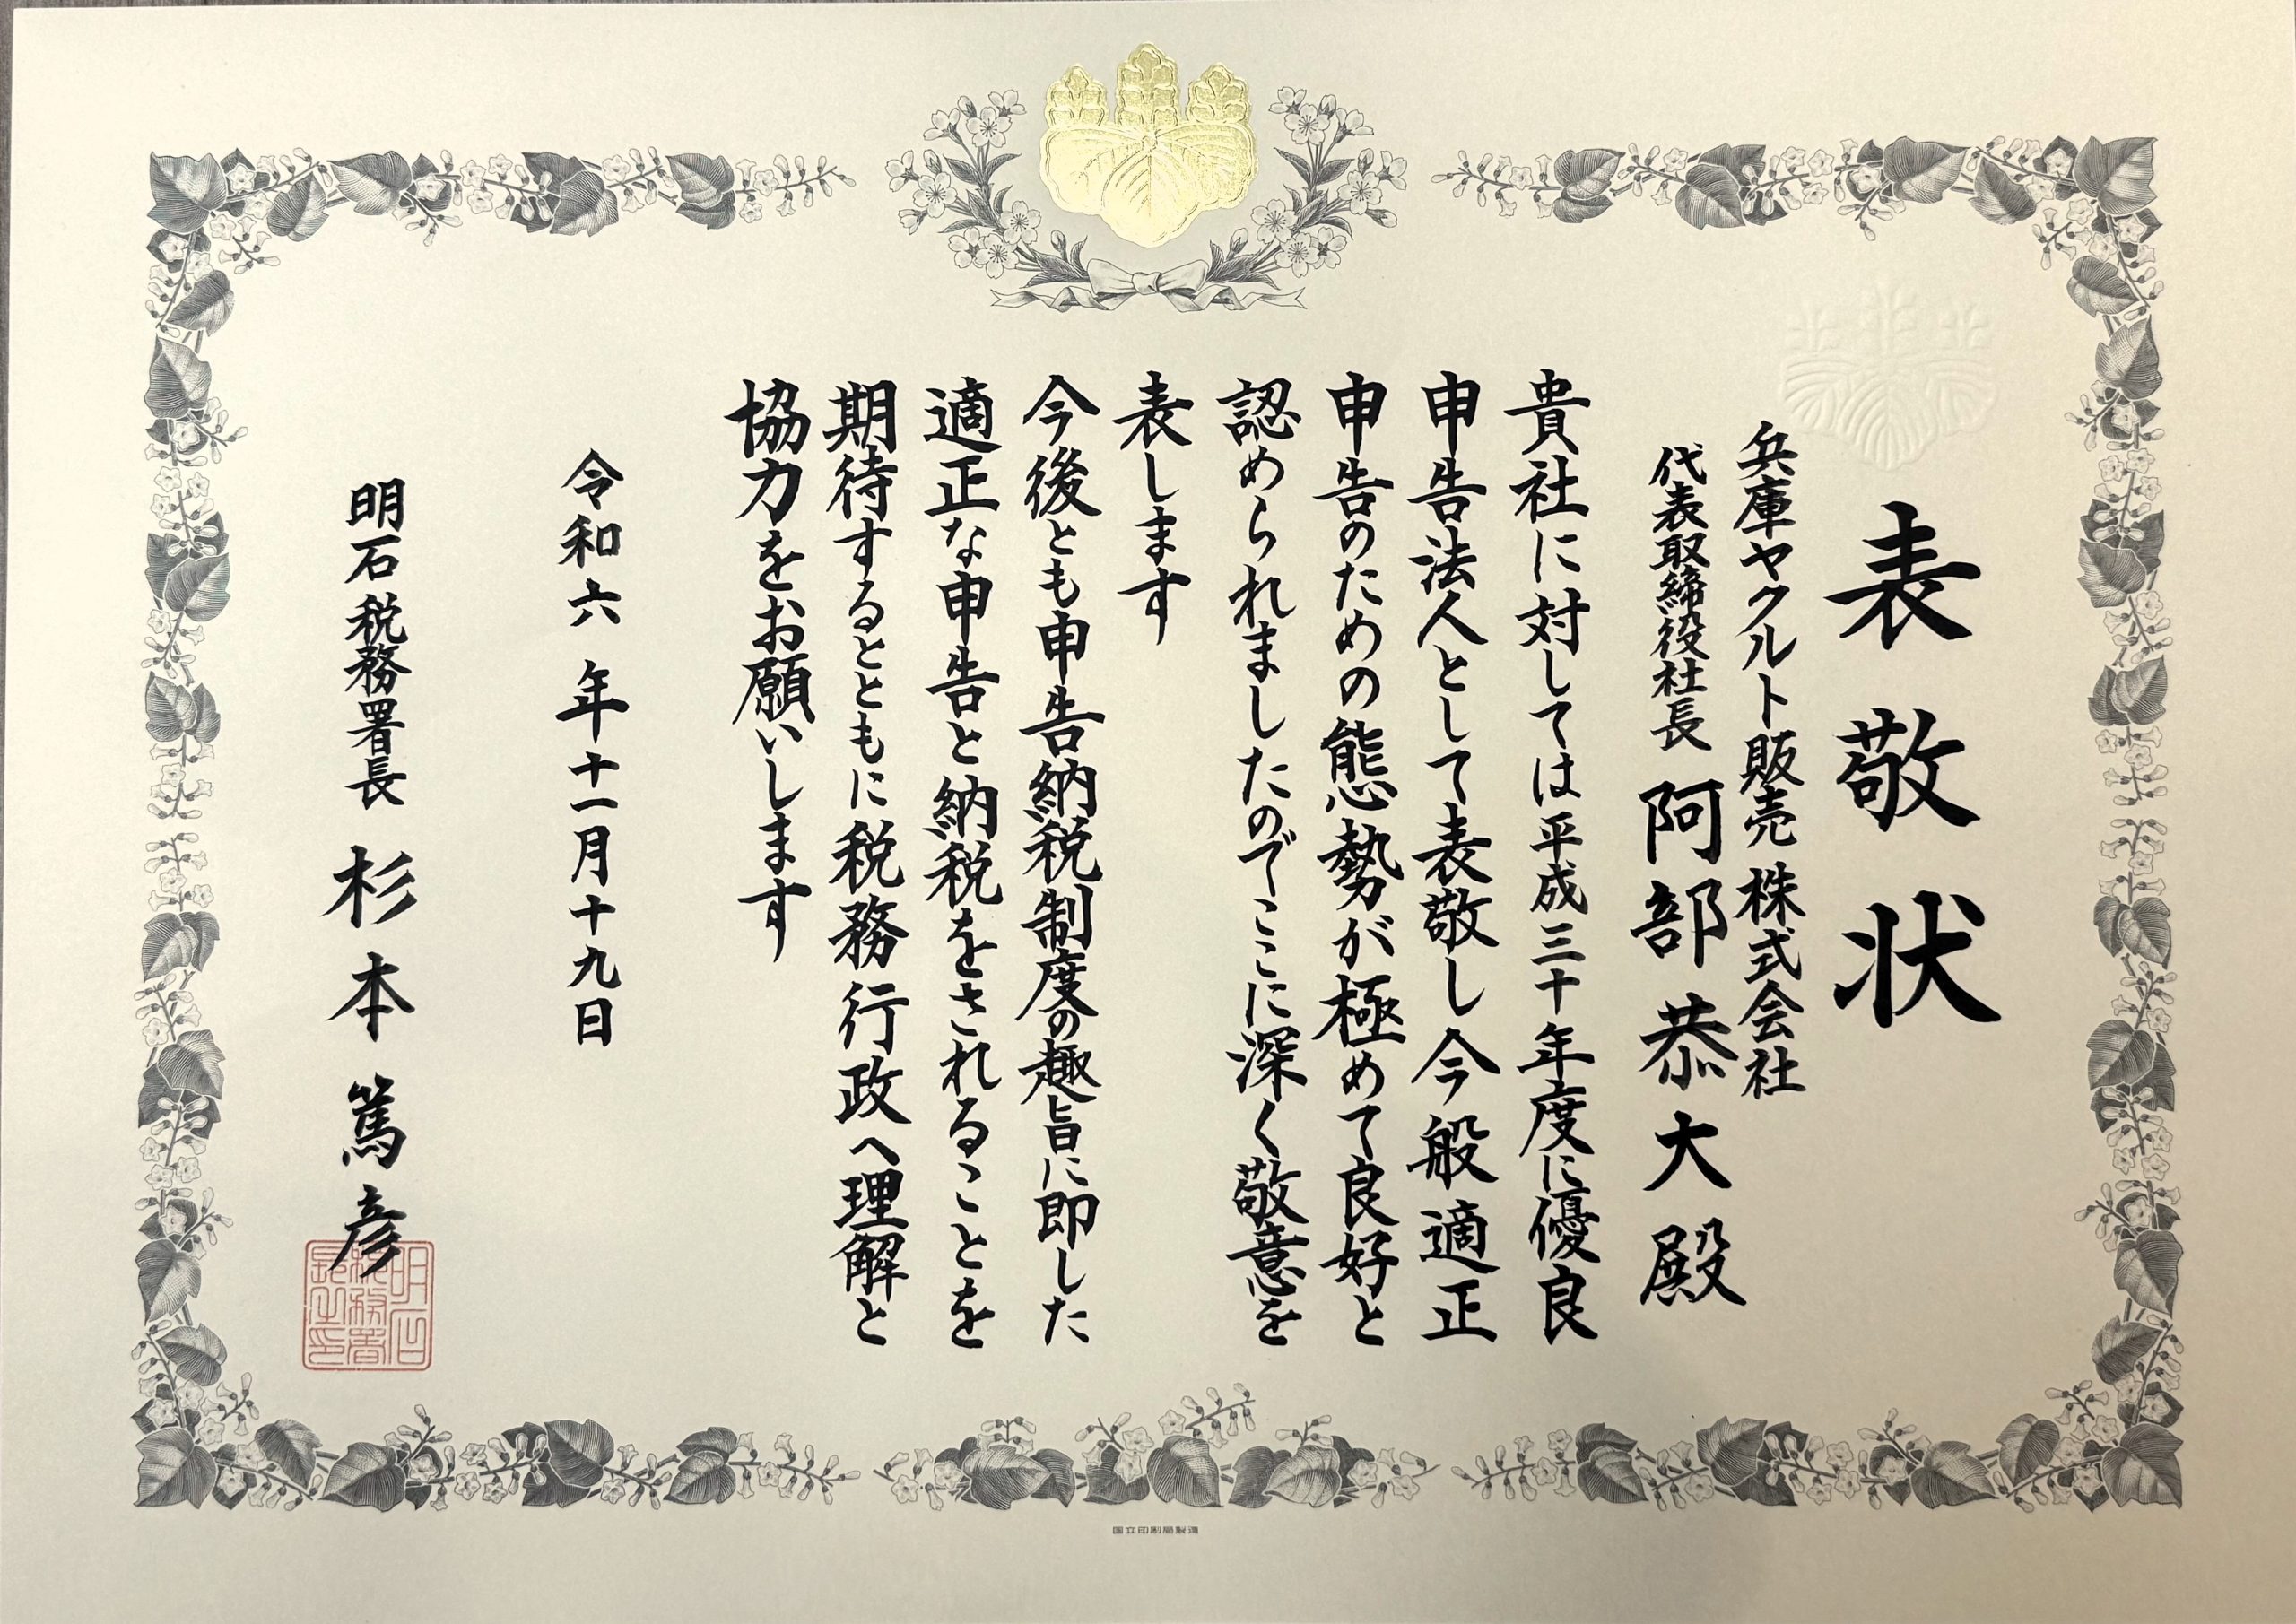 表敬状
兵庫ヤクルト販売株式会社
代表取締役社長 阿部恭大殿
貴社に対しては平成三十年度に優良
申告法人として表敬し今般適正
申告のための態勢が極めて良好と
認められましたのでここに深く敬意を
表します
今後とも申告納税制度の趣旨に即した
適正な申告と納税をされることを
期待するとともに税務行政へ理解と
協力をお願いします
令和六年十一月十九日
明石税務署長 杉本篤彦
明石税務署長之印
国立印刷局製造